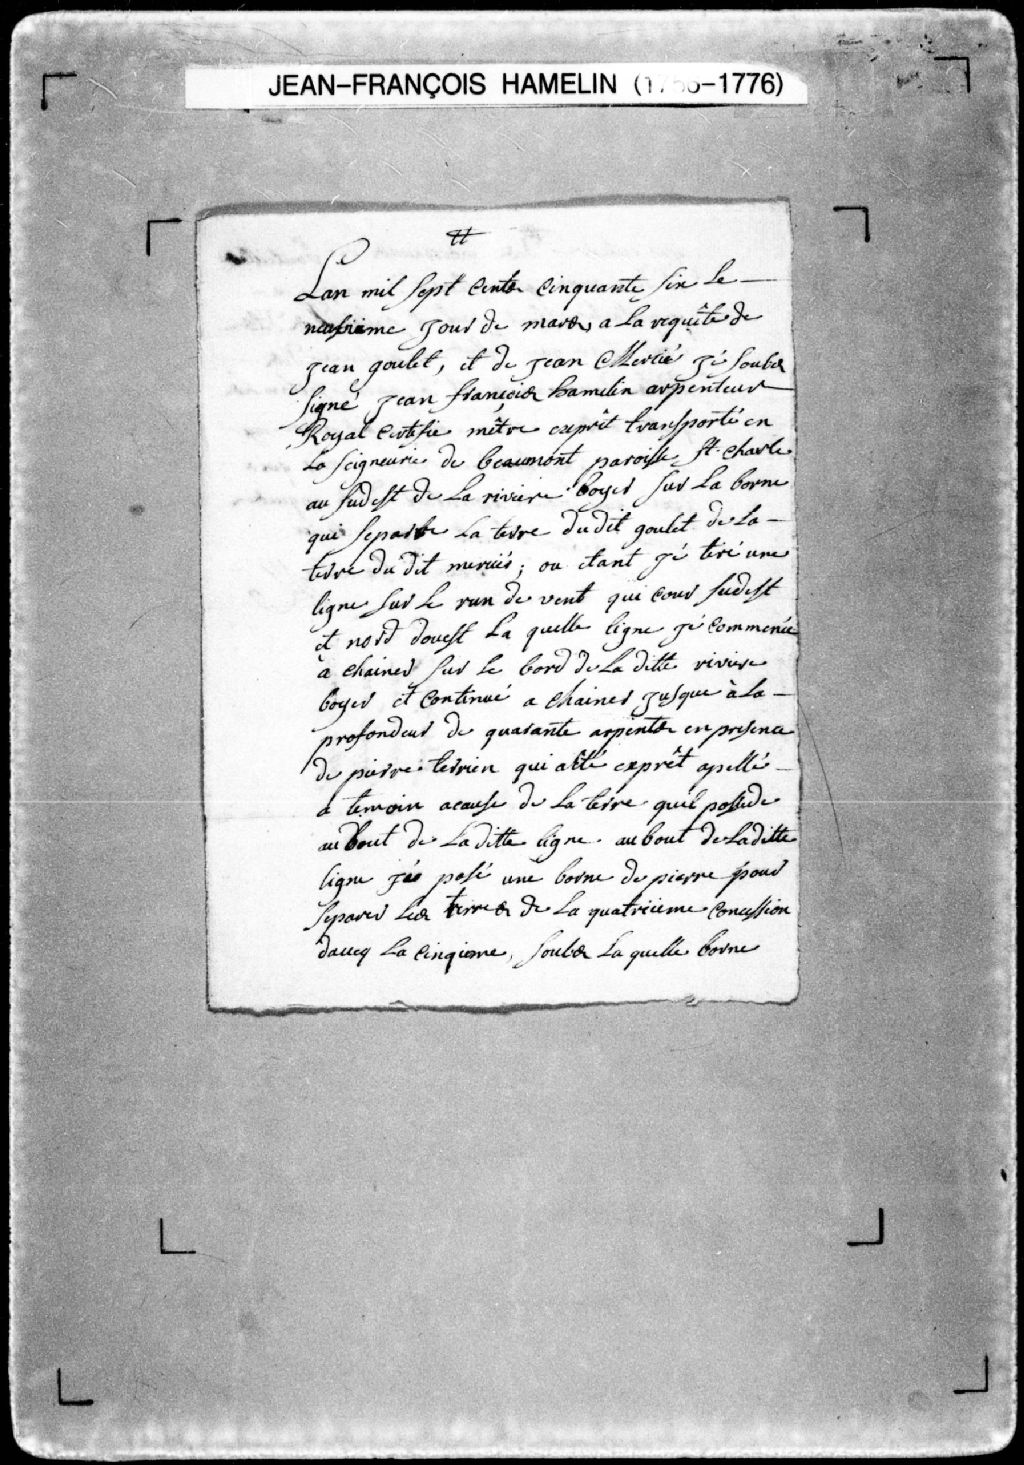 JEAN-FRANÇOIS HAMELIN (1756-1776)
Lan mil sept cents cinquante six le
neufieme jour de mars, a la requête de
jean goulet, et de jean Mercié jé soubs
signé jean françois hamelin arpenteur
Royal certifie mêtre exprêt transporté en
la seigneurie de beaumont paroisse st. charle
au sudest de la riviere boyer sur la borne
qui separe la terre dudit goulet de la
terre du dit merciér; ou etant jé tiré une
ligne sur le run de vent qui cour sudest
et nord douest la quelle ligne jé commencée
à chainer sur le bord de la ditte riviere
boyer et continué a chainer jusque à la
profondeur de quarante arpents en presence
de pierre terrien qui a êté exprêt apellé
a temoin acause de la terre quil possede
au bout de la ditte ligne. au bout de laditte
ligne jéé posé une borne de pierre pour
separer les terres de la quatrieme concession
daucq la cinqieme, soubs la quelle borne